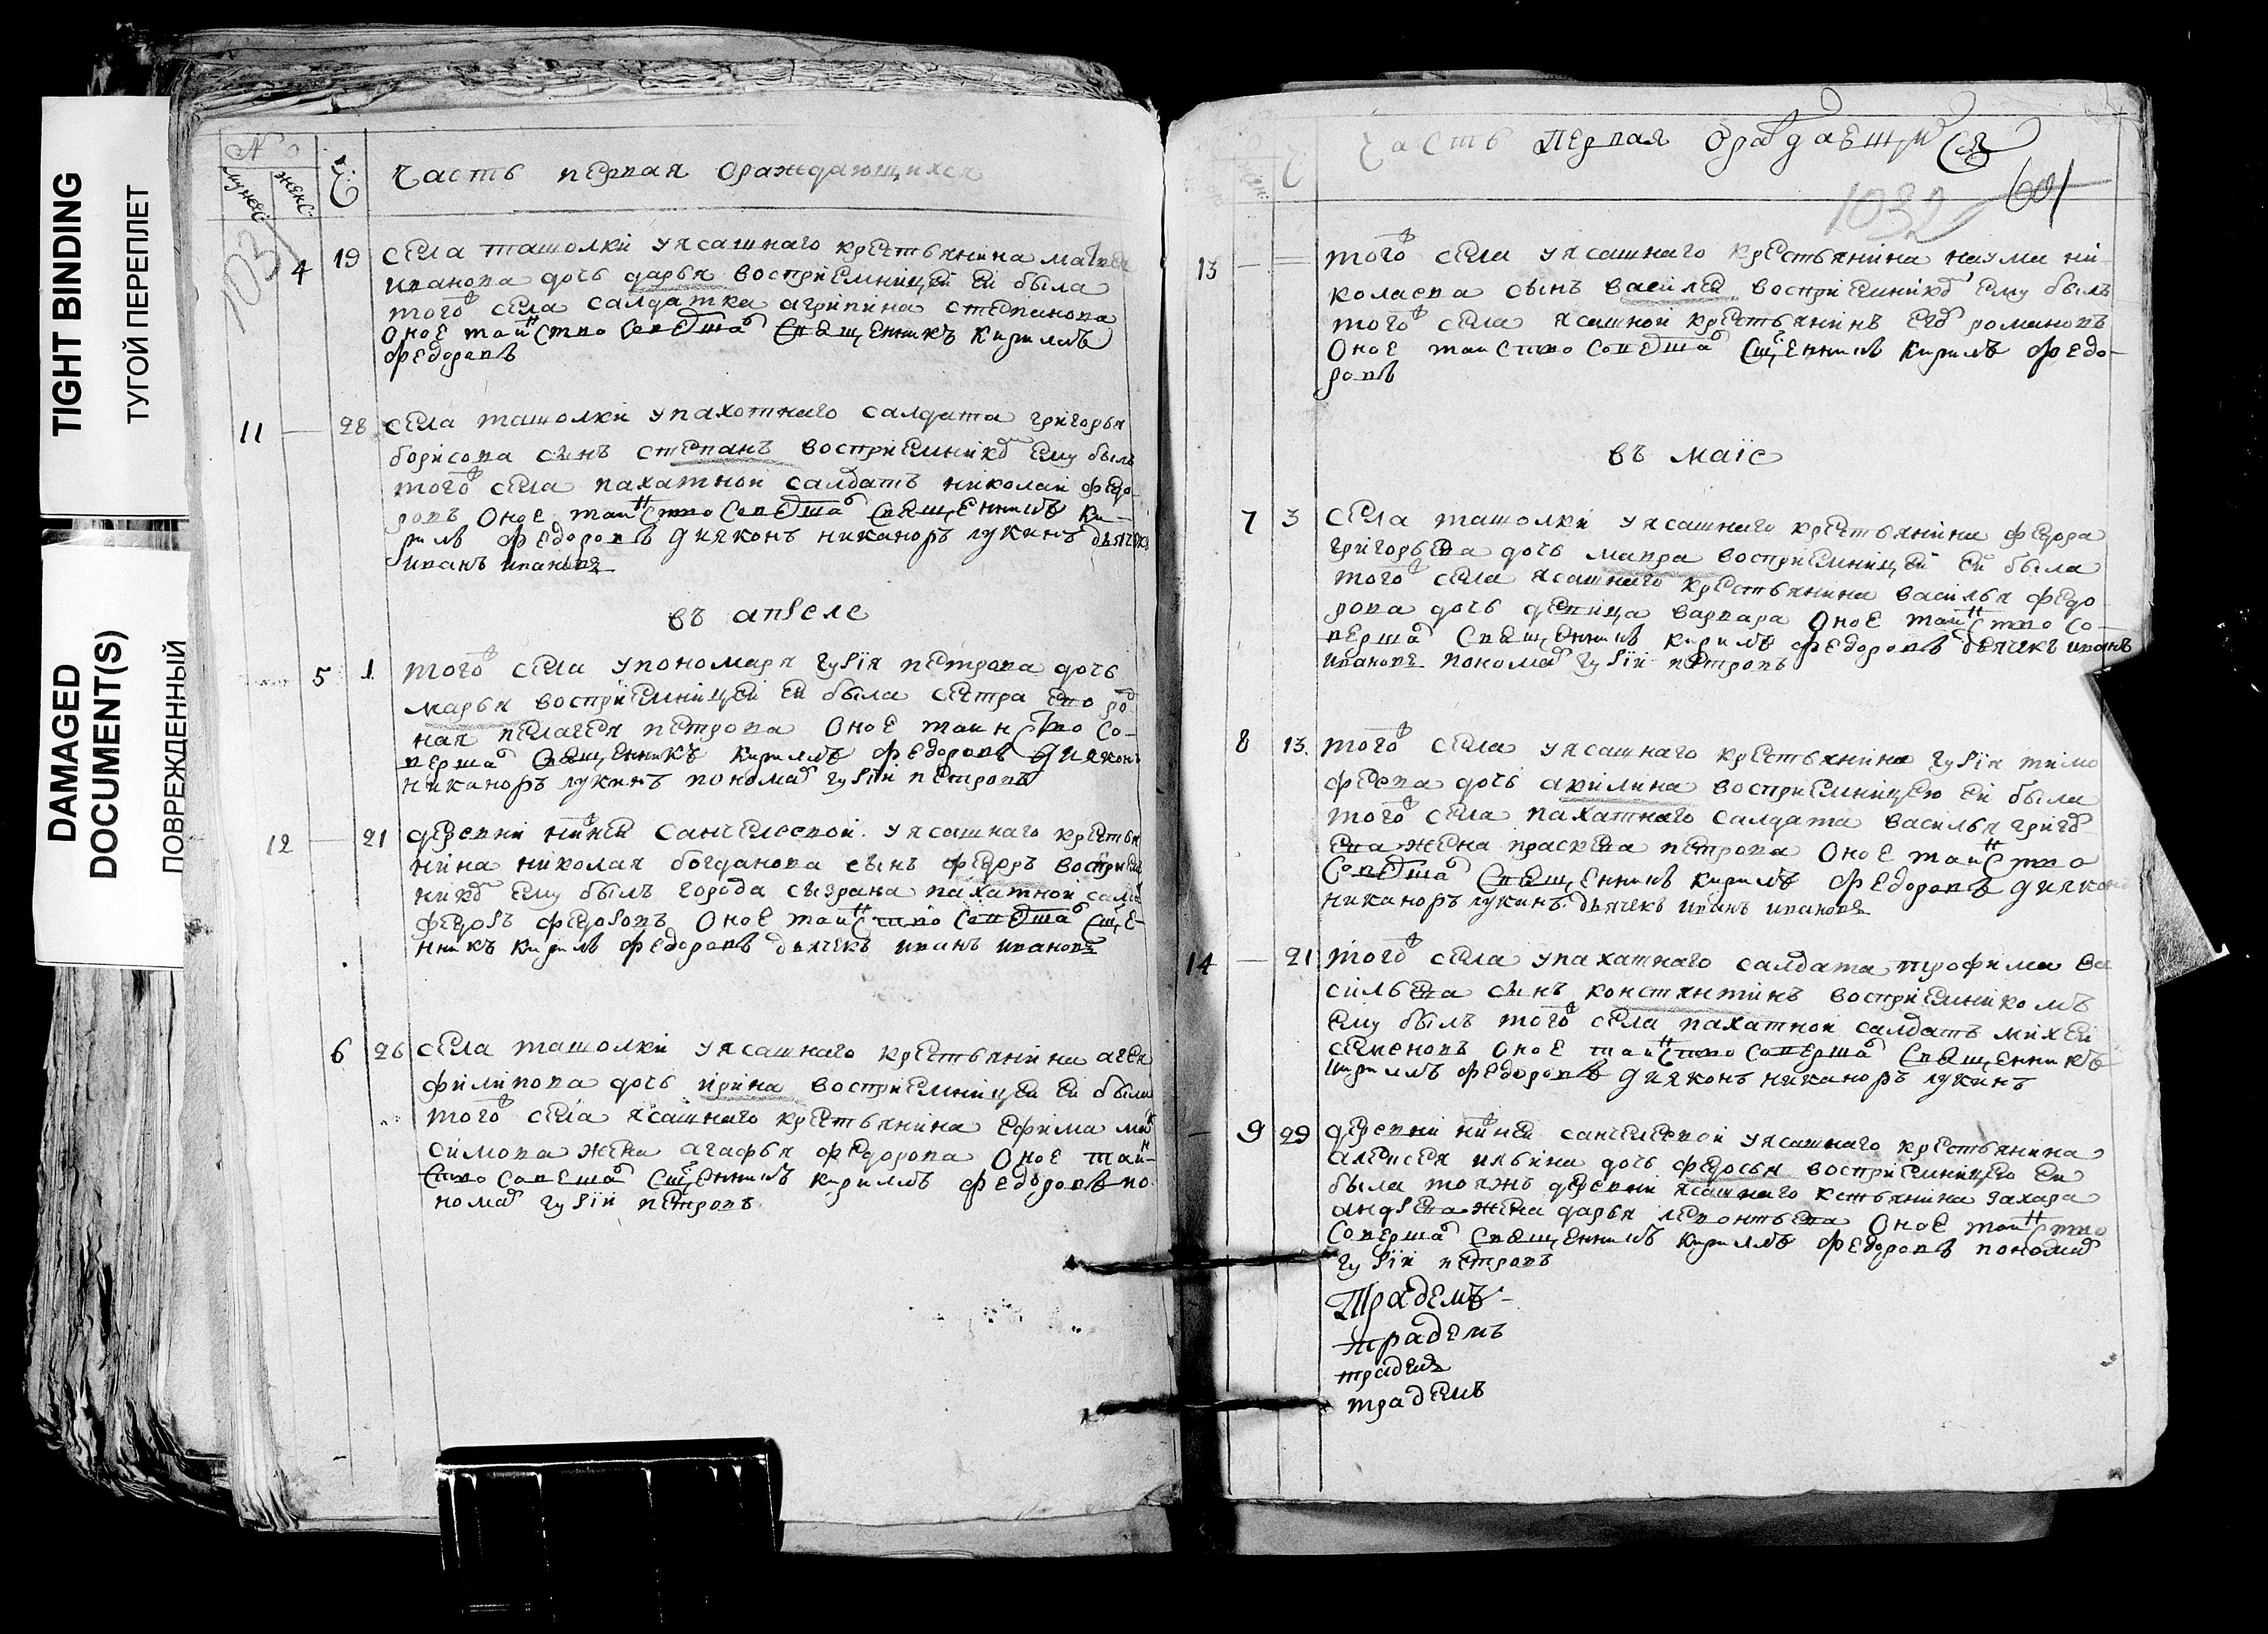 TIGHT BINDING
ТУГОЙ ПЕРЕПЛЕТ
DAMAGED
DOCUMENT(S)
ПОВРЕЖДЕННЫЙ
№
мужес: женс: Ч:
Часть первая ораждающихся
4 19 села ташолки уясашнаго крестьянина матвея
иванова дочь дарья восприемницей ей была
того села салдатка агрипина степанова
Оное таинство совершал Священникъ Кирилъ
федоровъ
11 28 села ташолки упахотнаго салдата григорья
борисова сынъ степанъ восприемником ему былъ
того села пахатной салдатъ николай федо
ровъ Оное таинство совершал Священникъ Ки-
рилъ федоровъ диякон никаноръ лукинъ дьячекъ
иванъ ивановъ
въ апреле
5 1 того села упономаря гурiя петрова дочь
марья восприемницей ей была сестра ево род
ная пелагея петрова Оное таинство со-
вершал Священникъ Кирилъ федоровъ дияконъ
никаноръ лукинъ пономар гурiй петровъ
12 21 деревни нижней санчелеевой уясашнаго крестья
нина николая богданова сынъ федоръ восприем
ником ему былъ города сызрана пахатной салда
федоръ федоровъ Оное таинство совершал Сще-
нникъ Кирилъ федоровъ дьячекъ иванъ ивановъ
6 26 села ташолки уясашнаго крестьянина агея
филипова дочь ирина восприемницей ей была
того села ясашнаго крестьянина ефима мак
симова жена агафья федорова Оное таин-
ство совершал Сщенникъ Кирилъ федоровъ по
номар гурiй петровъ
Часть первая ораждающихся
1032 601
13 того села уясашнаго крестьянина наума ни
колаева сынъ василей восприемником ему былъ
того села ясашной крестьянинъ егор романовъ
Оное таинство совершал Сщенникъ Кирилъ федо-
ровъ
въ маiе
7 3 села ташолки уясашнаго крестьянина федора
григорьева дочь мавра восприемницей ей была
того села ясашнаго крестьянина василья федо
рова дочь девица варвара Оное таинство со-
вершал Священникъ Кирилъ федоровъ дьячекъ иванъ
ивановъ пономар гурiй петровъ
8 13. того села уясашнаго крестьянина гурiя тимо
феева дочь акилина восприемницею ей была
того села пахатнаго салдата василья григор
ева жена прасковья петрова Оное таинство
совершал Священникъ Кирилъ федоровъ дияконъ
никаноръ лукинъ дьячекъ иванъ ивановъ
14 21 того села упахатнаго салдата трофима ва
сильева сынъ констянтинъ восприемникомъ
ему былъ того села пахатной салдатъ михей
семеновъ Оное таинство совершал Священникъ
Кирилъ федоровъ дияконъ никаноръ лукинъ
9 29 деревни нижней санчелеевой уясашнаго крестьянина
алексея ильина дочь федосья восприемницею ей
была тояжъ деревни ясашнаго кстьянина захара
андреева жена дарья леонтьева Оное таинство
совершал Священникъ Кирилъ федоровъ пономар
гурiй петровъ